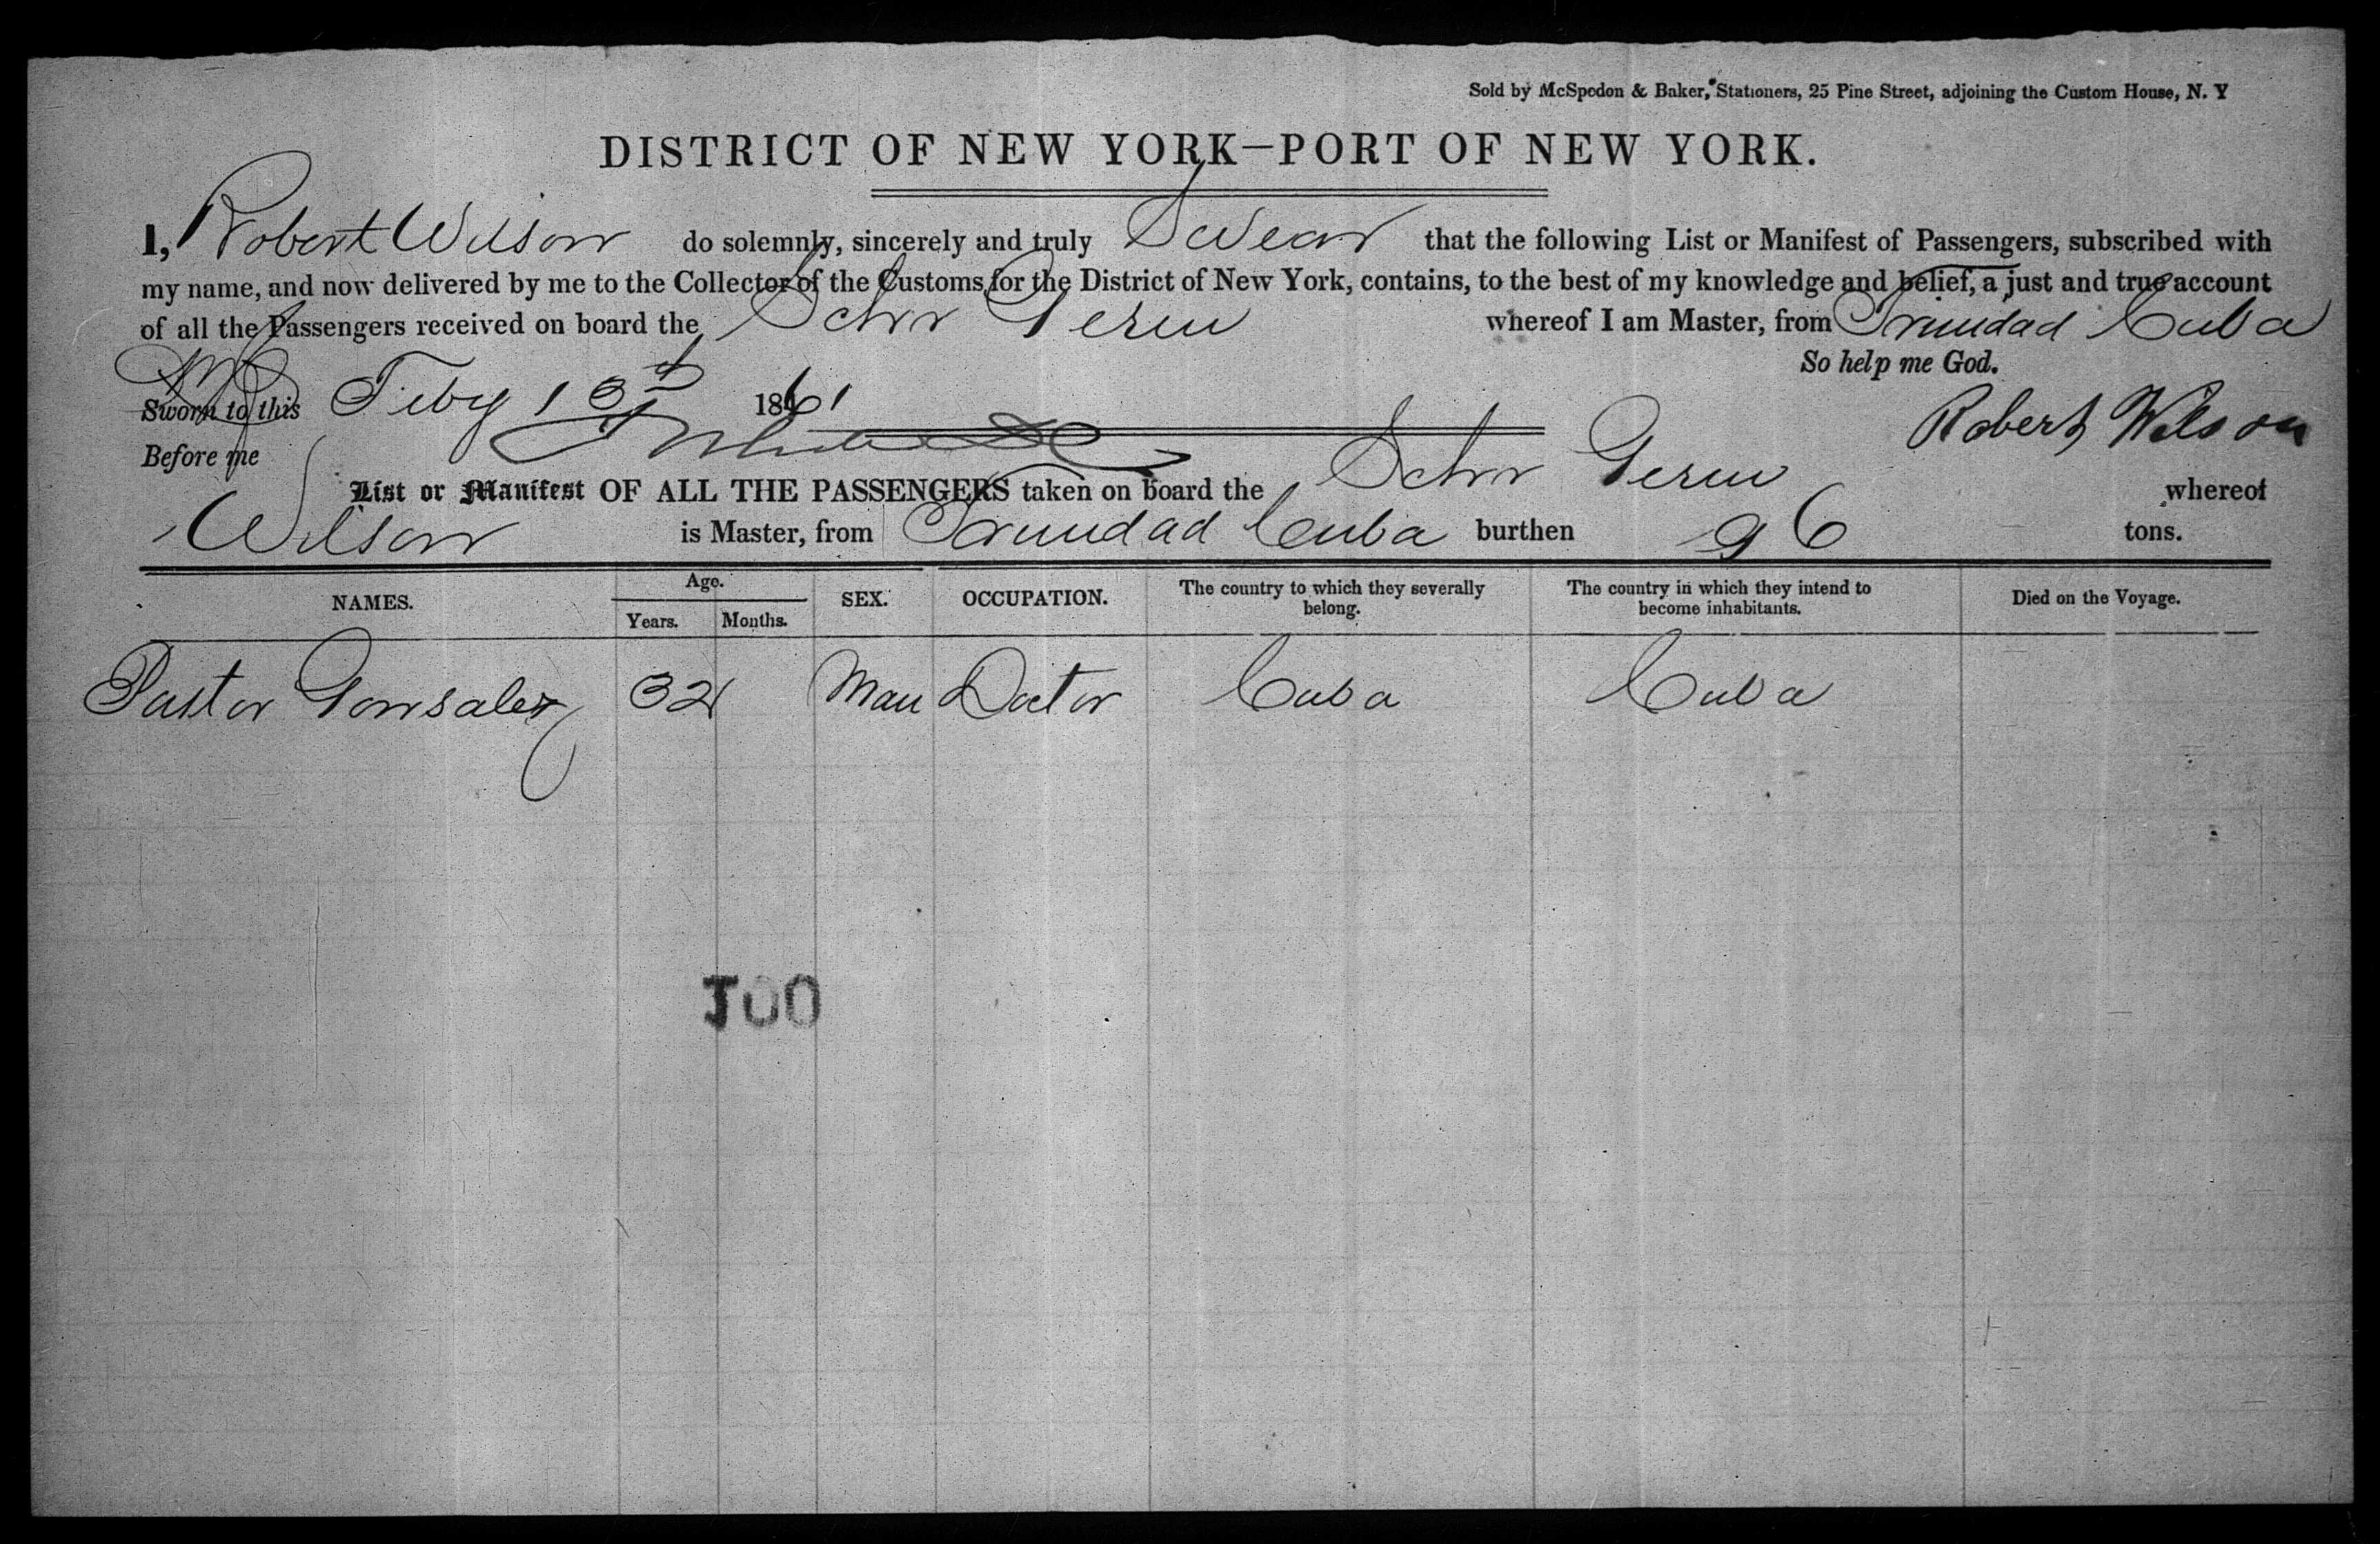 Sold by McSpedon & Baker, Stationers, 25 Pine Street, adjoining the Custom House, N. Y
DISTRICT OF NEW YORK—PORT OF NEW YORK.
I, Robert Wilson do solemnly, sincerely and truly Swear that the following List or Manifest of Passengers, subscribed with
my name, and now delivered by me to the Collector of the Customs for the District of New York, contains, to the best of my knowledge and belief, a just and true account
of all the Passengers received on board the Schr whereof I am Master, from Trinidad Cuba
So help me God.
Sworn to this Feby 13 1861
Robert Wilson
Before me
List or Manifest OF ALL THE PASSENGERS taken on board the Schr whereof
Wilson is Master, from Trinidad Cuba burthen 96 tons.
NAMES. Age. Years. Months. SEX. OCCUPATION. The country to which they severally belong. The country in which they intend to become inhabitants. Died on the Voyage.
Pastor Gonsalez 32 Man Doctor Cuba Cuba